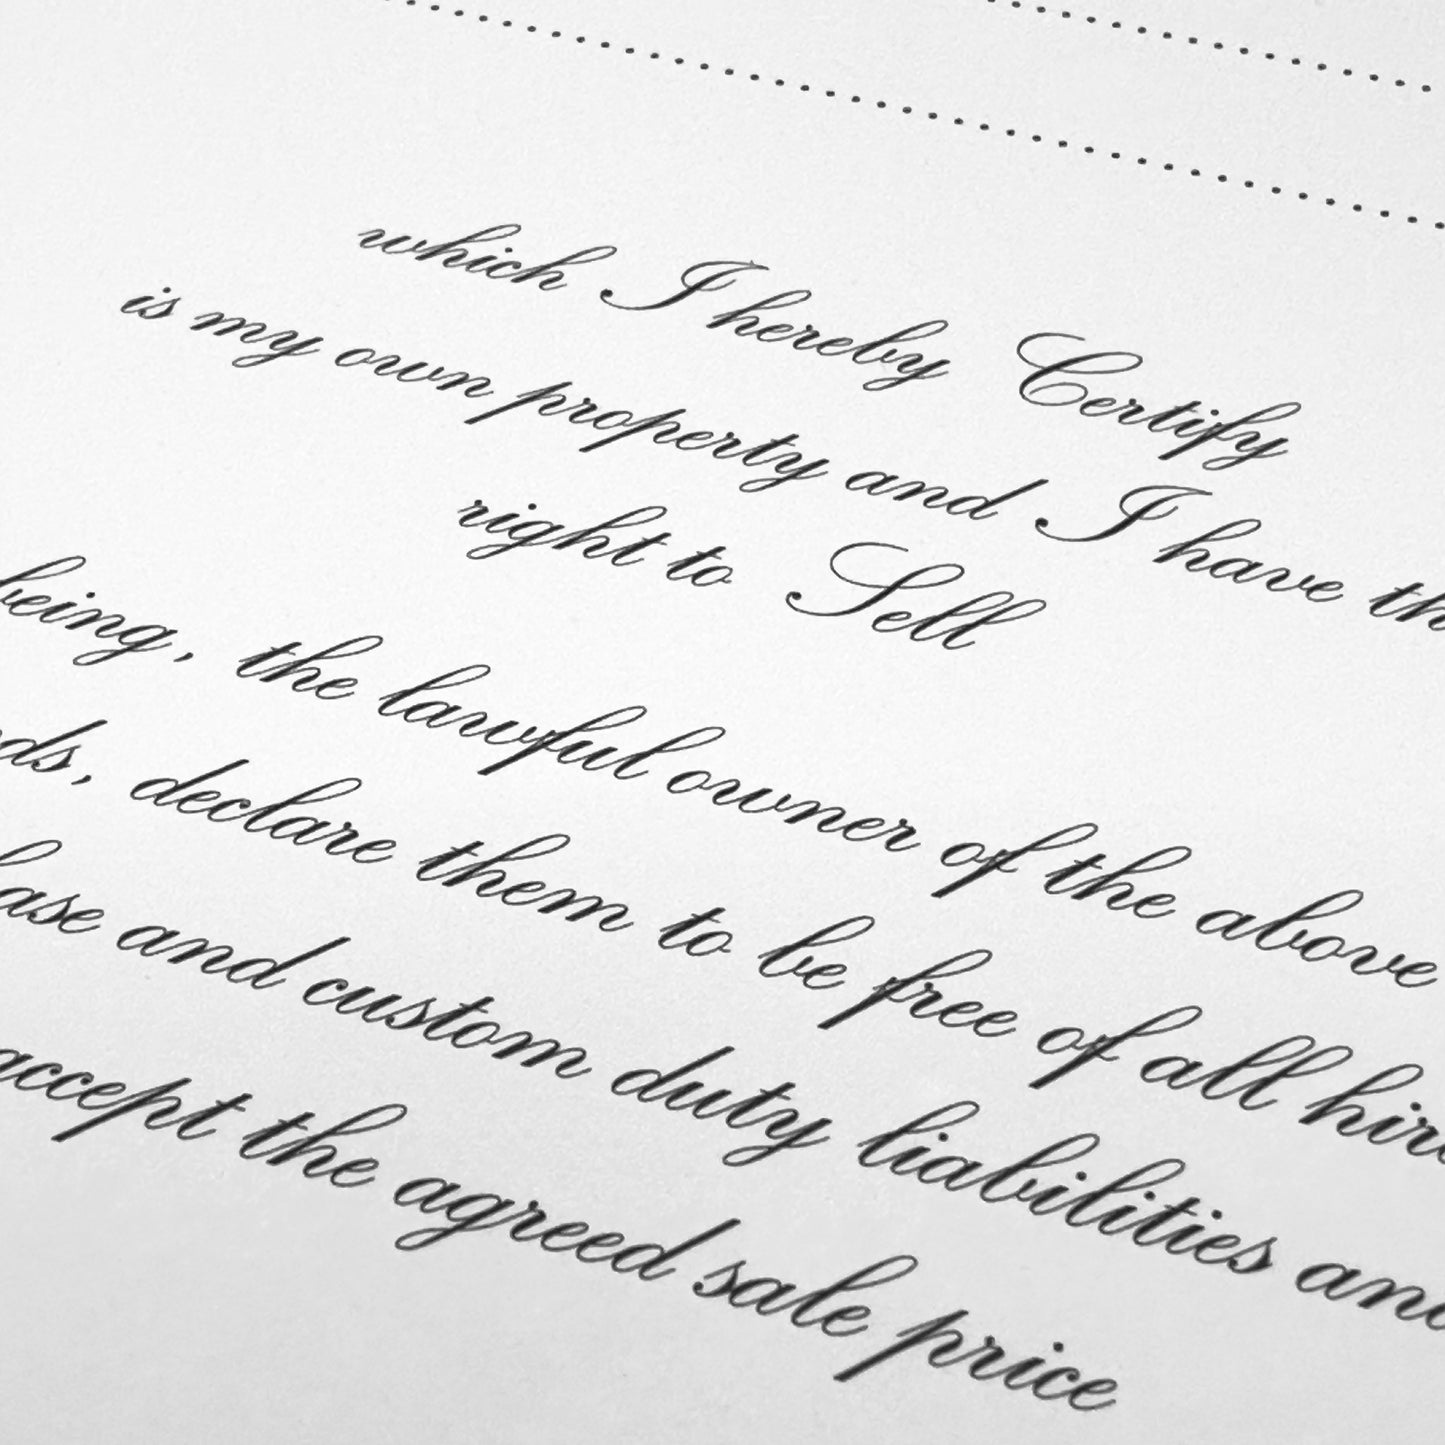 which I hereby Certify
is my own property and I have
right to Sell
being, the lawful owner of the above
declare them to be free of all
and custom duty liabilities
accept the agreed sale price